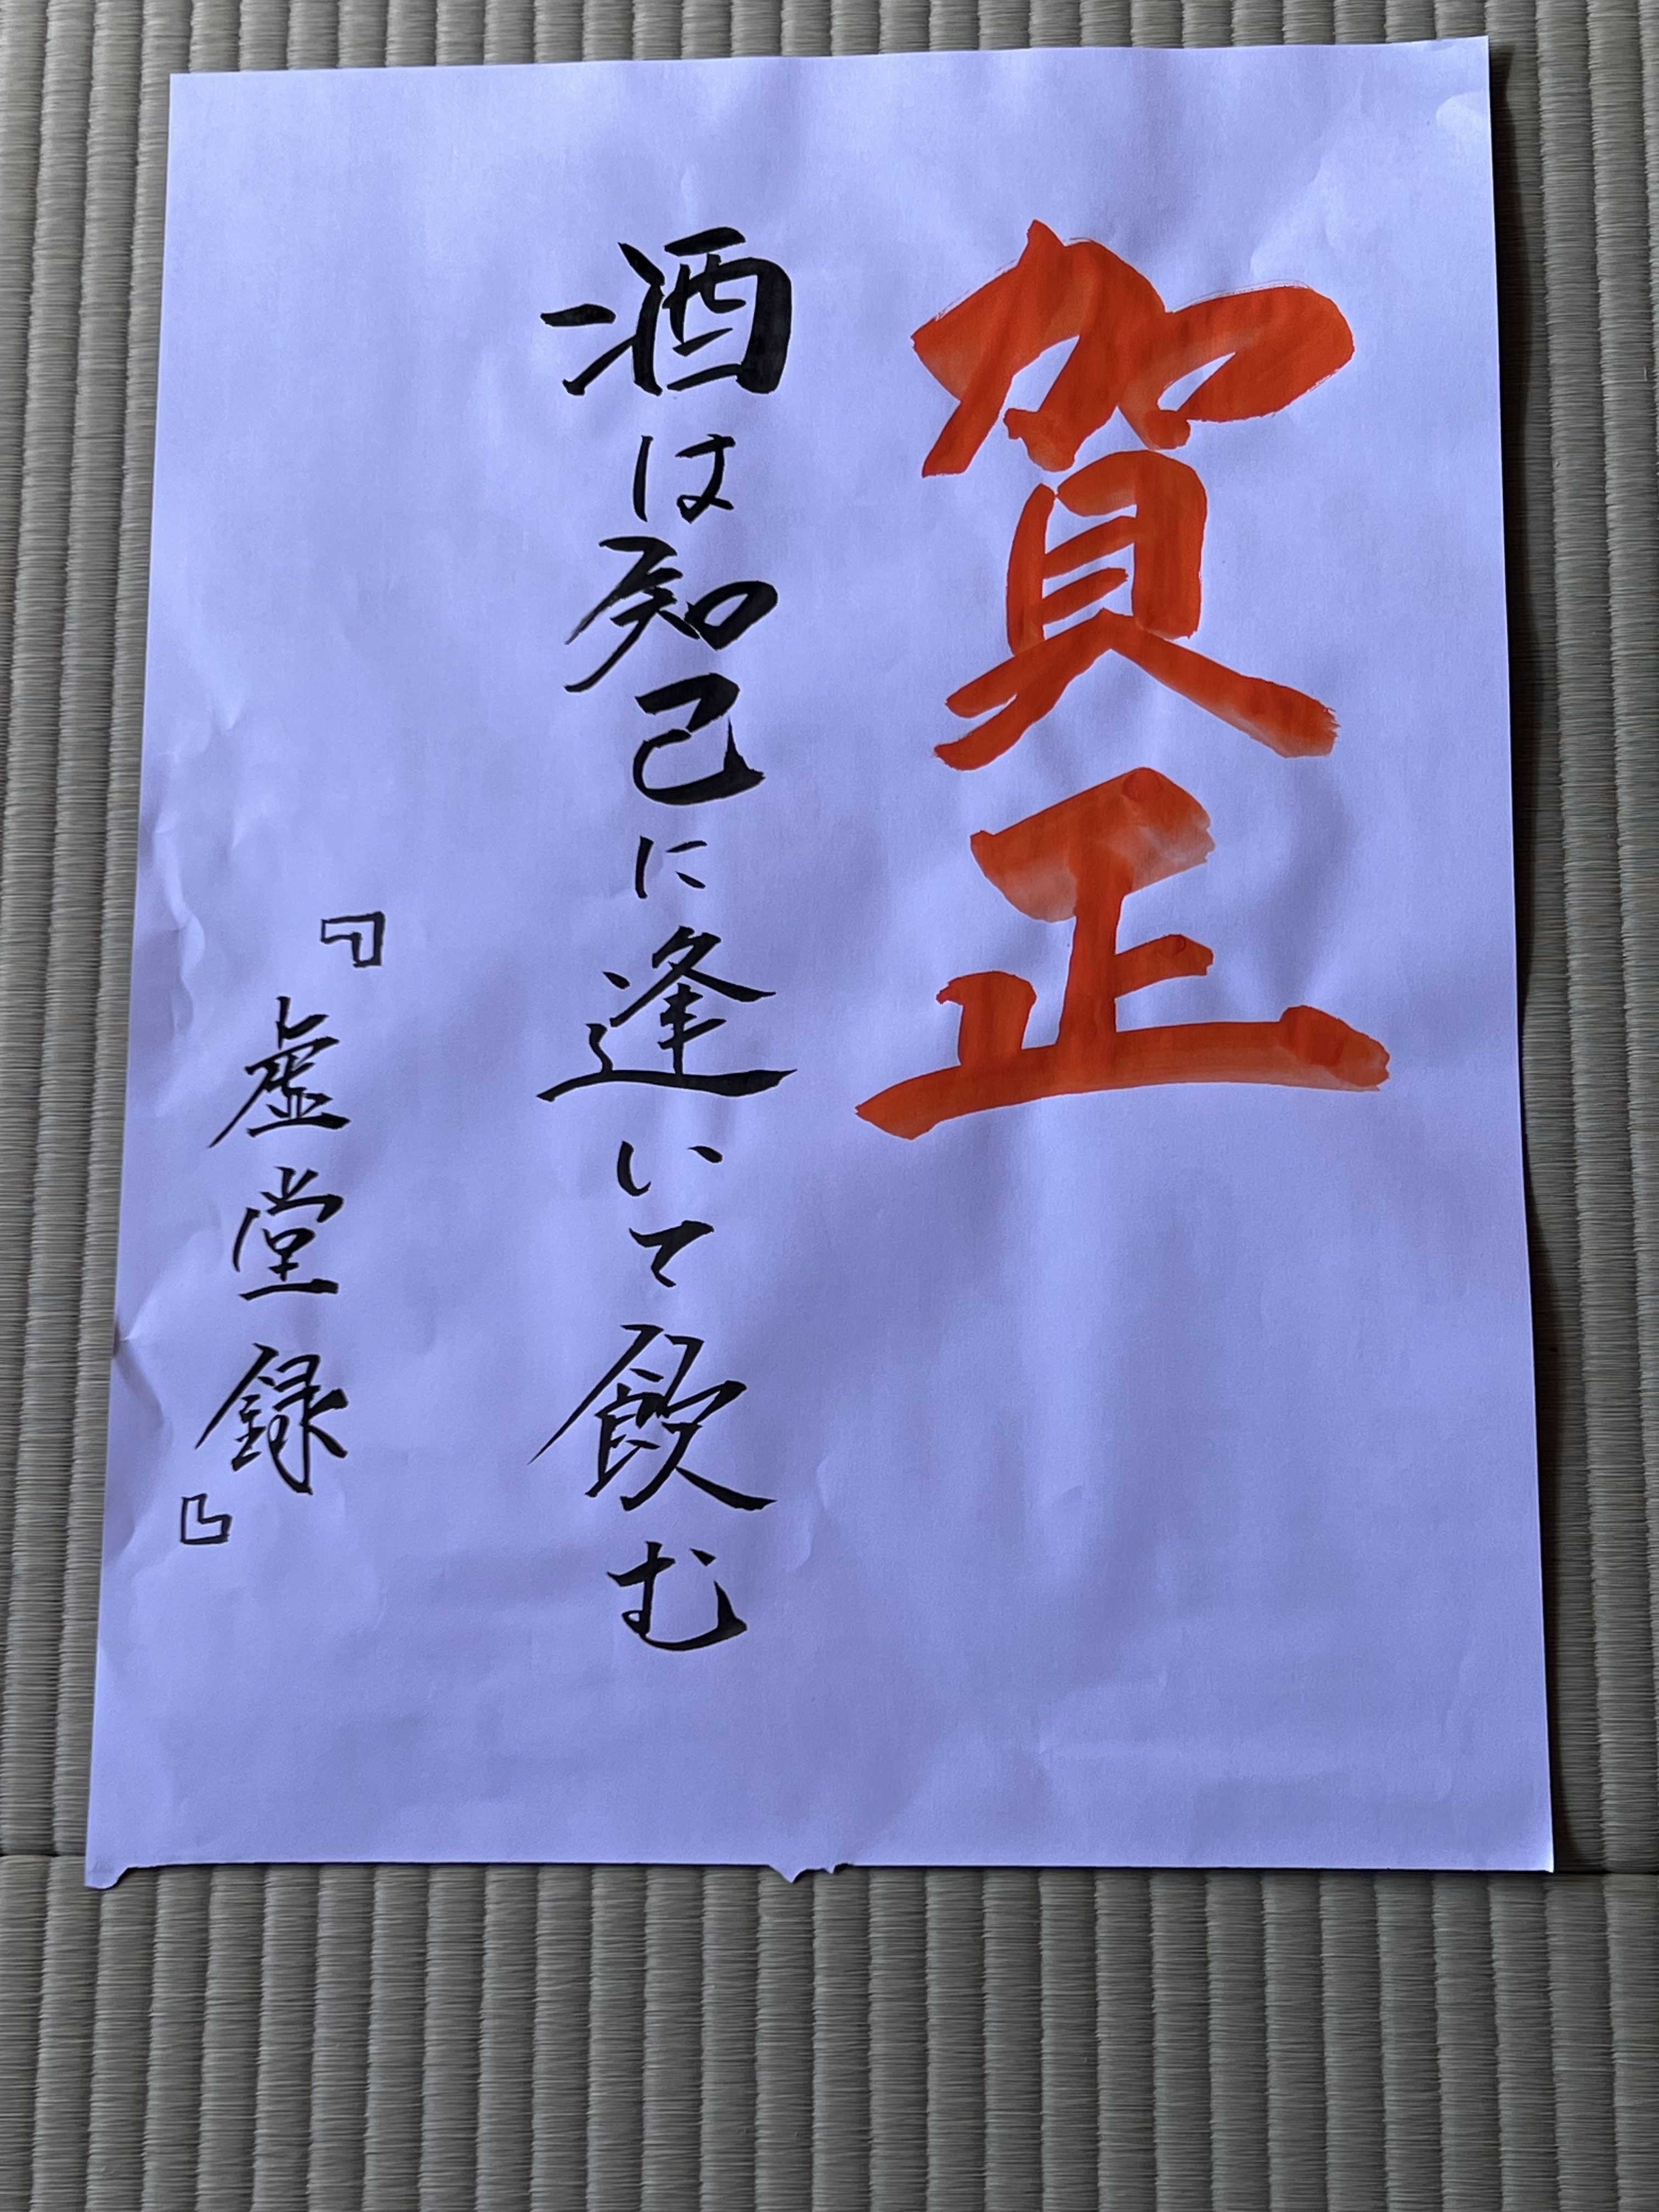 賀正
酒は知己に逢いて飲む
『虚堂録』